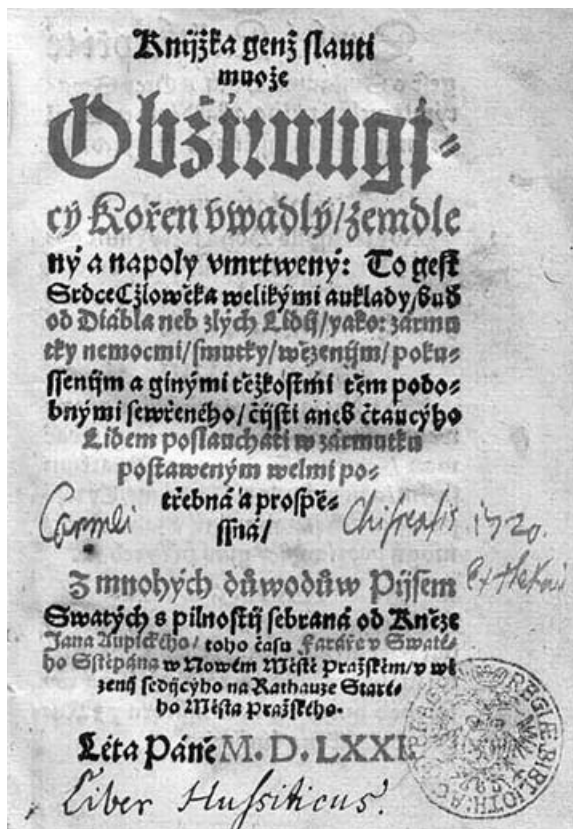 Knijžka genž slauti
muože
Obžiwugi⸗
cý Kořen vwadlý/ zemdle
ný a napoly vmrtwený: To gest
Srdce Cžlowěka welikými auklady/ buď
od Diábla neb zlých Lidij/ yako: zármu
tky nemocmi/ smutky/ wězenijm/ poku⸗
ssenijm a ginými těžkostmi těm podo⸗
bnými sewřeného/ čijsti aneb čtaucýho
Lidem poslauchati w zármutku
postaweným welmi po⸗
třebná a prospě⸗
ssná/
Carmeli Chiſtensis 1720.
Z mnohých důwodůw Pijsem
Swatých s pilnostij sebraná od Kněze
Jana Aupického/ toho času Faráře v Swaté⸗
ho Sstěpána w Nowém Městě Pražském/ v wě
zenij sedijcýho na Rathauze Staré⸗
ho Města Pražského.
Léta Páně M. D. LXXI
Liber Hussiticus.
REGIÆ BIBLIOTH: AC